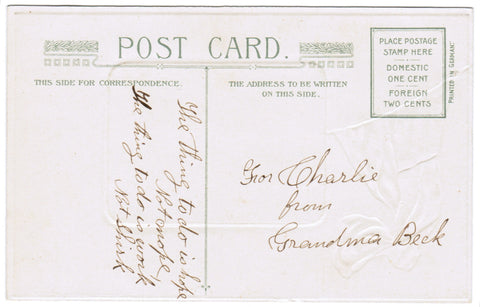 POST CARD.
THIS SIDE FOR CORRESPONDENCE.
THE ADDRESS TO BE WRITTEN
ON THIS SIDE.
PLACE POSTAGE
STAMP HERE
DOMESTIC
ONE CENT
FOREIGN
TWO CENTS
PRINTED IN GERMANY
The thing to do is hope
Not mope
The thing to do is work
Not Shirk
For Charlie
from
Grandma Beck